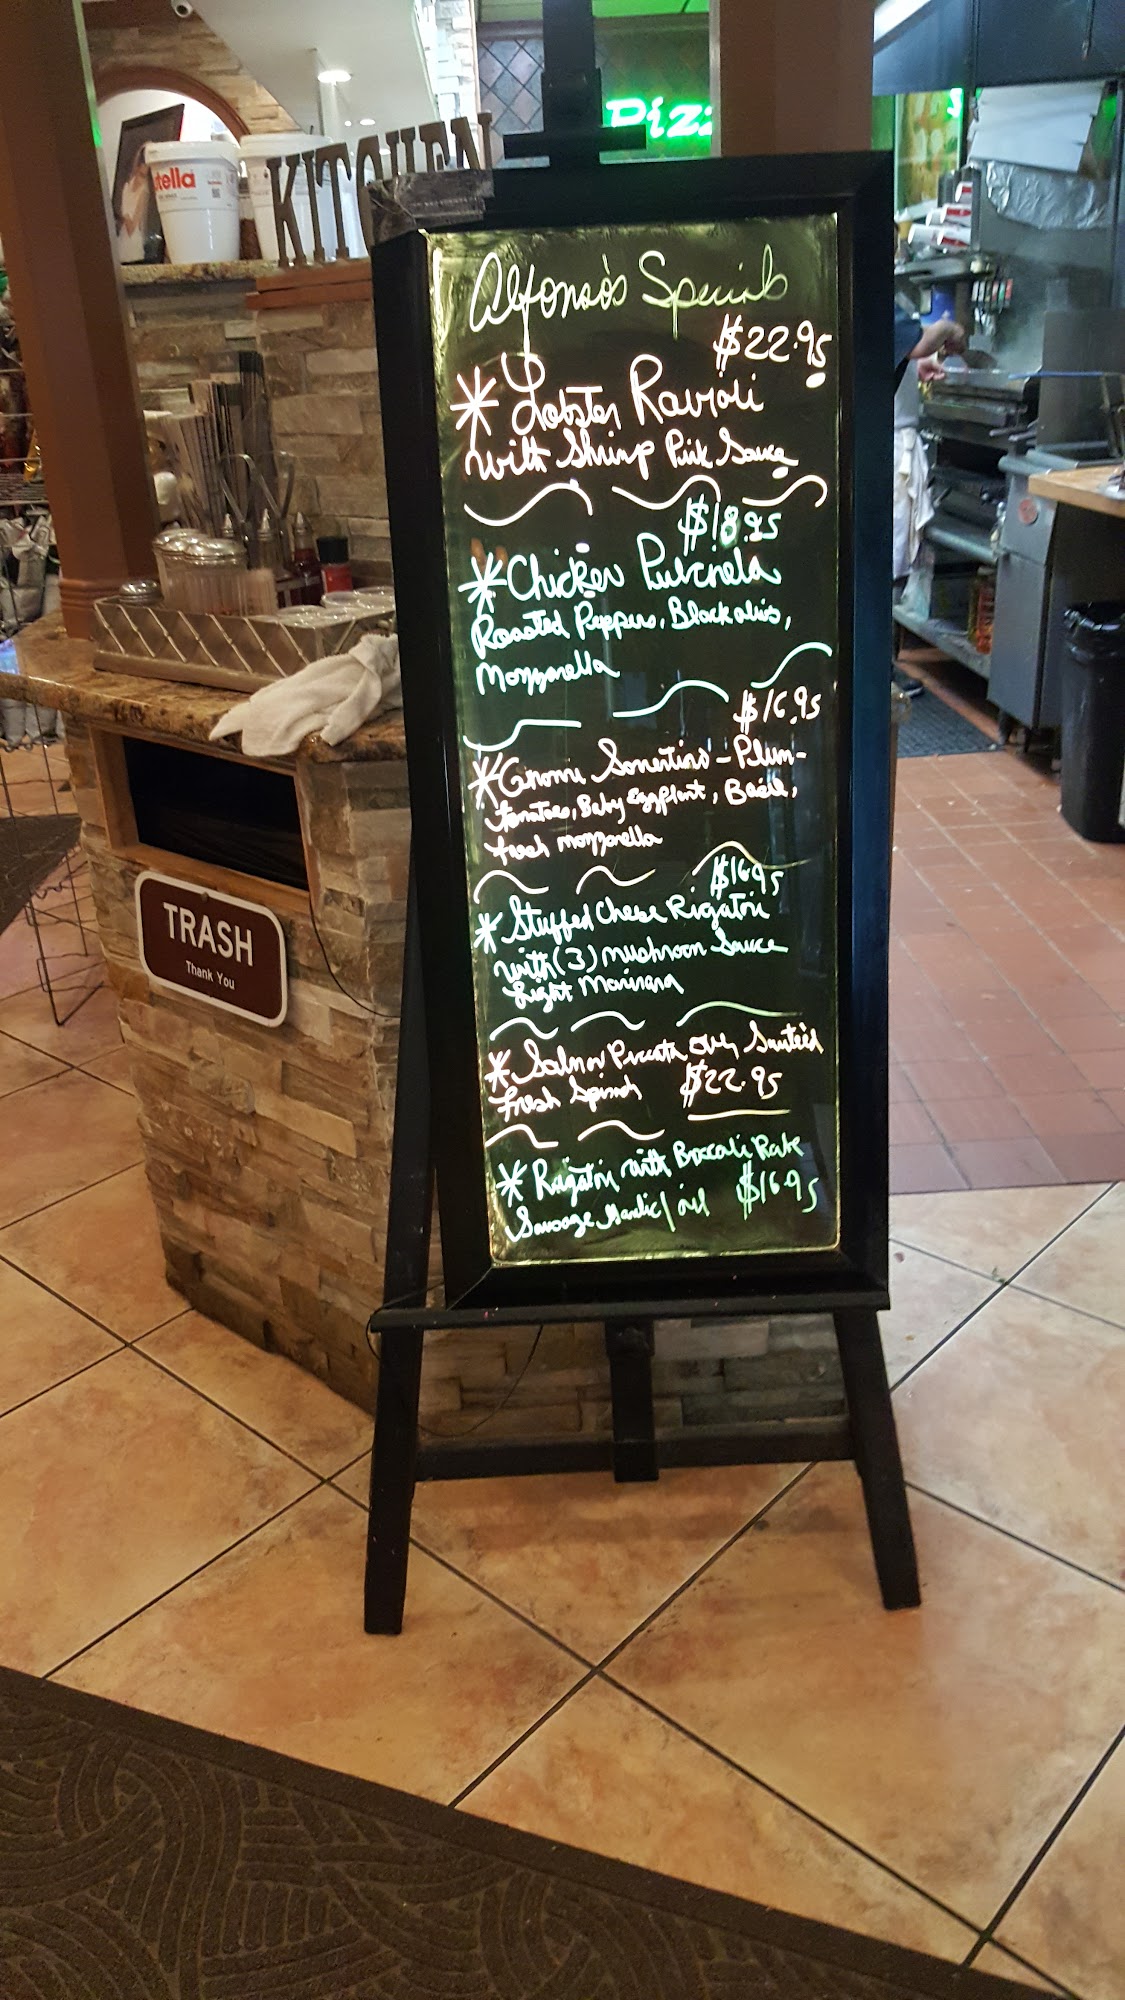 Pizz
tella
KITCHEN
Alfonso's Specials
$22.95
* Lobster Ravioli
with Shrimp Pink Sauce
$18.95
* Chicken Pulcinela
Roasted Peppers, Black olives,
Mozzarella
$16.95
* Sorrentino - Plum-
tomatoes, Baby Eggplant, Basil,
fresh mozzarella
$16.95
* Stuffed Cheese Rigatoni
with (3) mushroom Sauce
Light Marinara
* Salmon Piccata over Sauteéd
Fresh Spinach $22.95
* Rigatoni with Broccoli Rabe
Sausage Garlic/oil $16.95
TRASH
Thank You